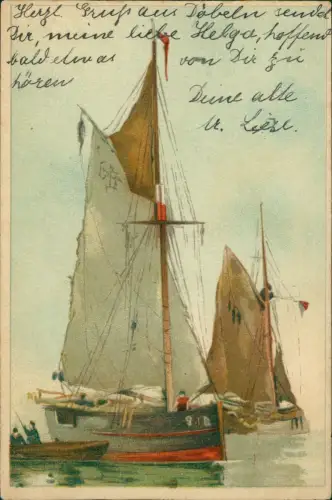 Herzl. Gruß aus Döbeln sendet
Dir, meine liebe Helga, hoffend
bald etwas von Dir zu
hören
Deine alte
Liesl.